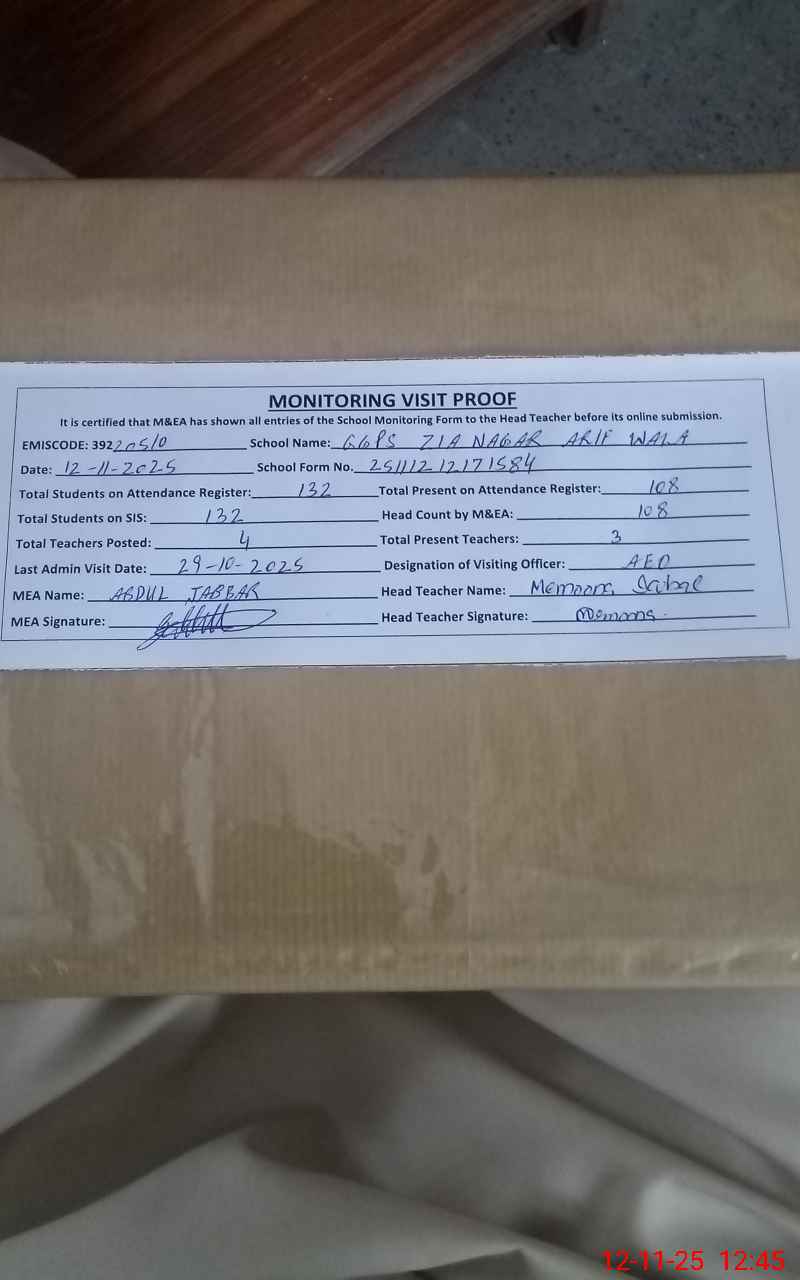 MONITORING VISIT PROOF
It is certified that M&EA has shown all entries of the School Monitoring Form to the Head Teacher before its online submission.
EMISCODE: 39220510 School Name: GGPS ZIA NAGAR ARIF WALA
Date: 12-11-2025 School Form No. 25111212171584
Total Students on Attendance Register: 132 Total Present on Attendance Register: 108
Total Students on SIS: 132 Head Count by M&EA: 108
Total Teachers Posted: 4 Total Present Teachers: 3
Last Admin Visit Date: 29-10-2025 Designation of Visiting Officer: AEO
MEA Name: ABDUL JABBAR Head Teacher Name:
MEA Signature: Head Teacher Signature:
12-11-25 12:45